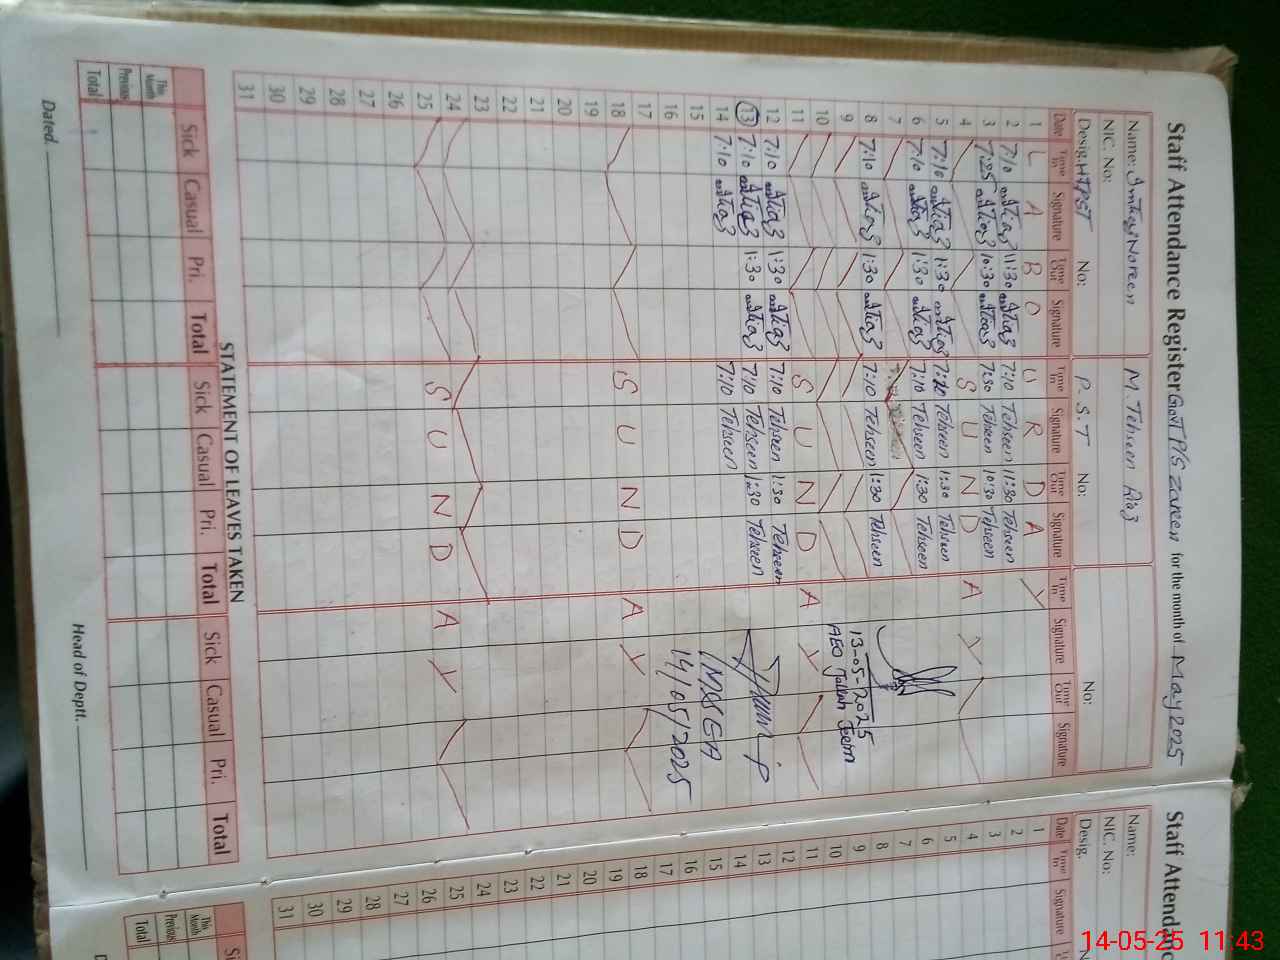 Staff Attendance Register Govt P/S Zareen for the month of May 2025
Name: Imtiaz Noreen M. Tehseen Riaz
NIC. No:
Desig. HTPST No: P.S.T No: No:
Date Time In Signature Time Out Signature Time In Signature Time Out Signature Time In Signature Time Out Signature
1 L A B O U R D A Y
2 7:10 11:30 7:10 Tehseen 11:30 Tehseen
3 7:25 10:30 7:30 Tehseen 10:30 Tehseen
4 S U N D A Y
5 7:10 1:30 7:10 Tehseen 1:30 Tehseen
6 7:10 1:30 7:10 Tehseen 1:30 Tehseen
7
8 7:10 1:30 7:10 Tehseen 1:30 Tehseen
9
10
11 S U N D A Y
12 7:10 1:30 7:10 Tehseen 1:30 Tehseen
13 7:10 1:30 7:10 Tehseen 1:30 Tehseen
14 7:10 7:10 Tehseen
15
16
17
18 S U N D A Y
19
20
21
22
23
24
25 S U N D A Y
26
27
28
29
30
31
13-05-2025
AEO
14/05/2025
STATEMENT OF LEAVES TAKEN
Sick Casual Pri. Total Sick Casual Pri. Total Sick Casual Pri. Total
This Month
Previous
Total
Dated. Head of Deptt.
Staff Attendanc
Name:
NIC. No:
Desig.
Date Time In Signature
1
2
3
4
5
6
7
8
9
10
11
12
13
14
15
16
17
18
19
20
21
22
23
24
25
26
27
28
29
30
31
This Month
Previous
Total
14-05-25 11:43